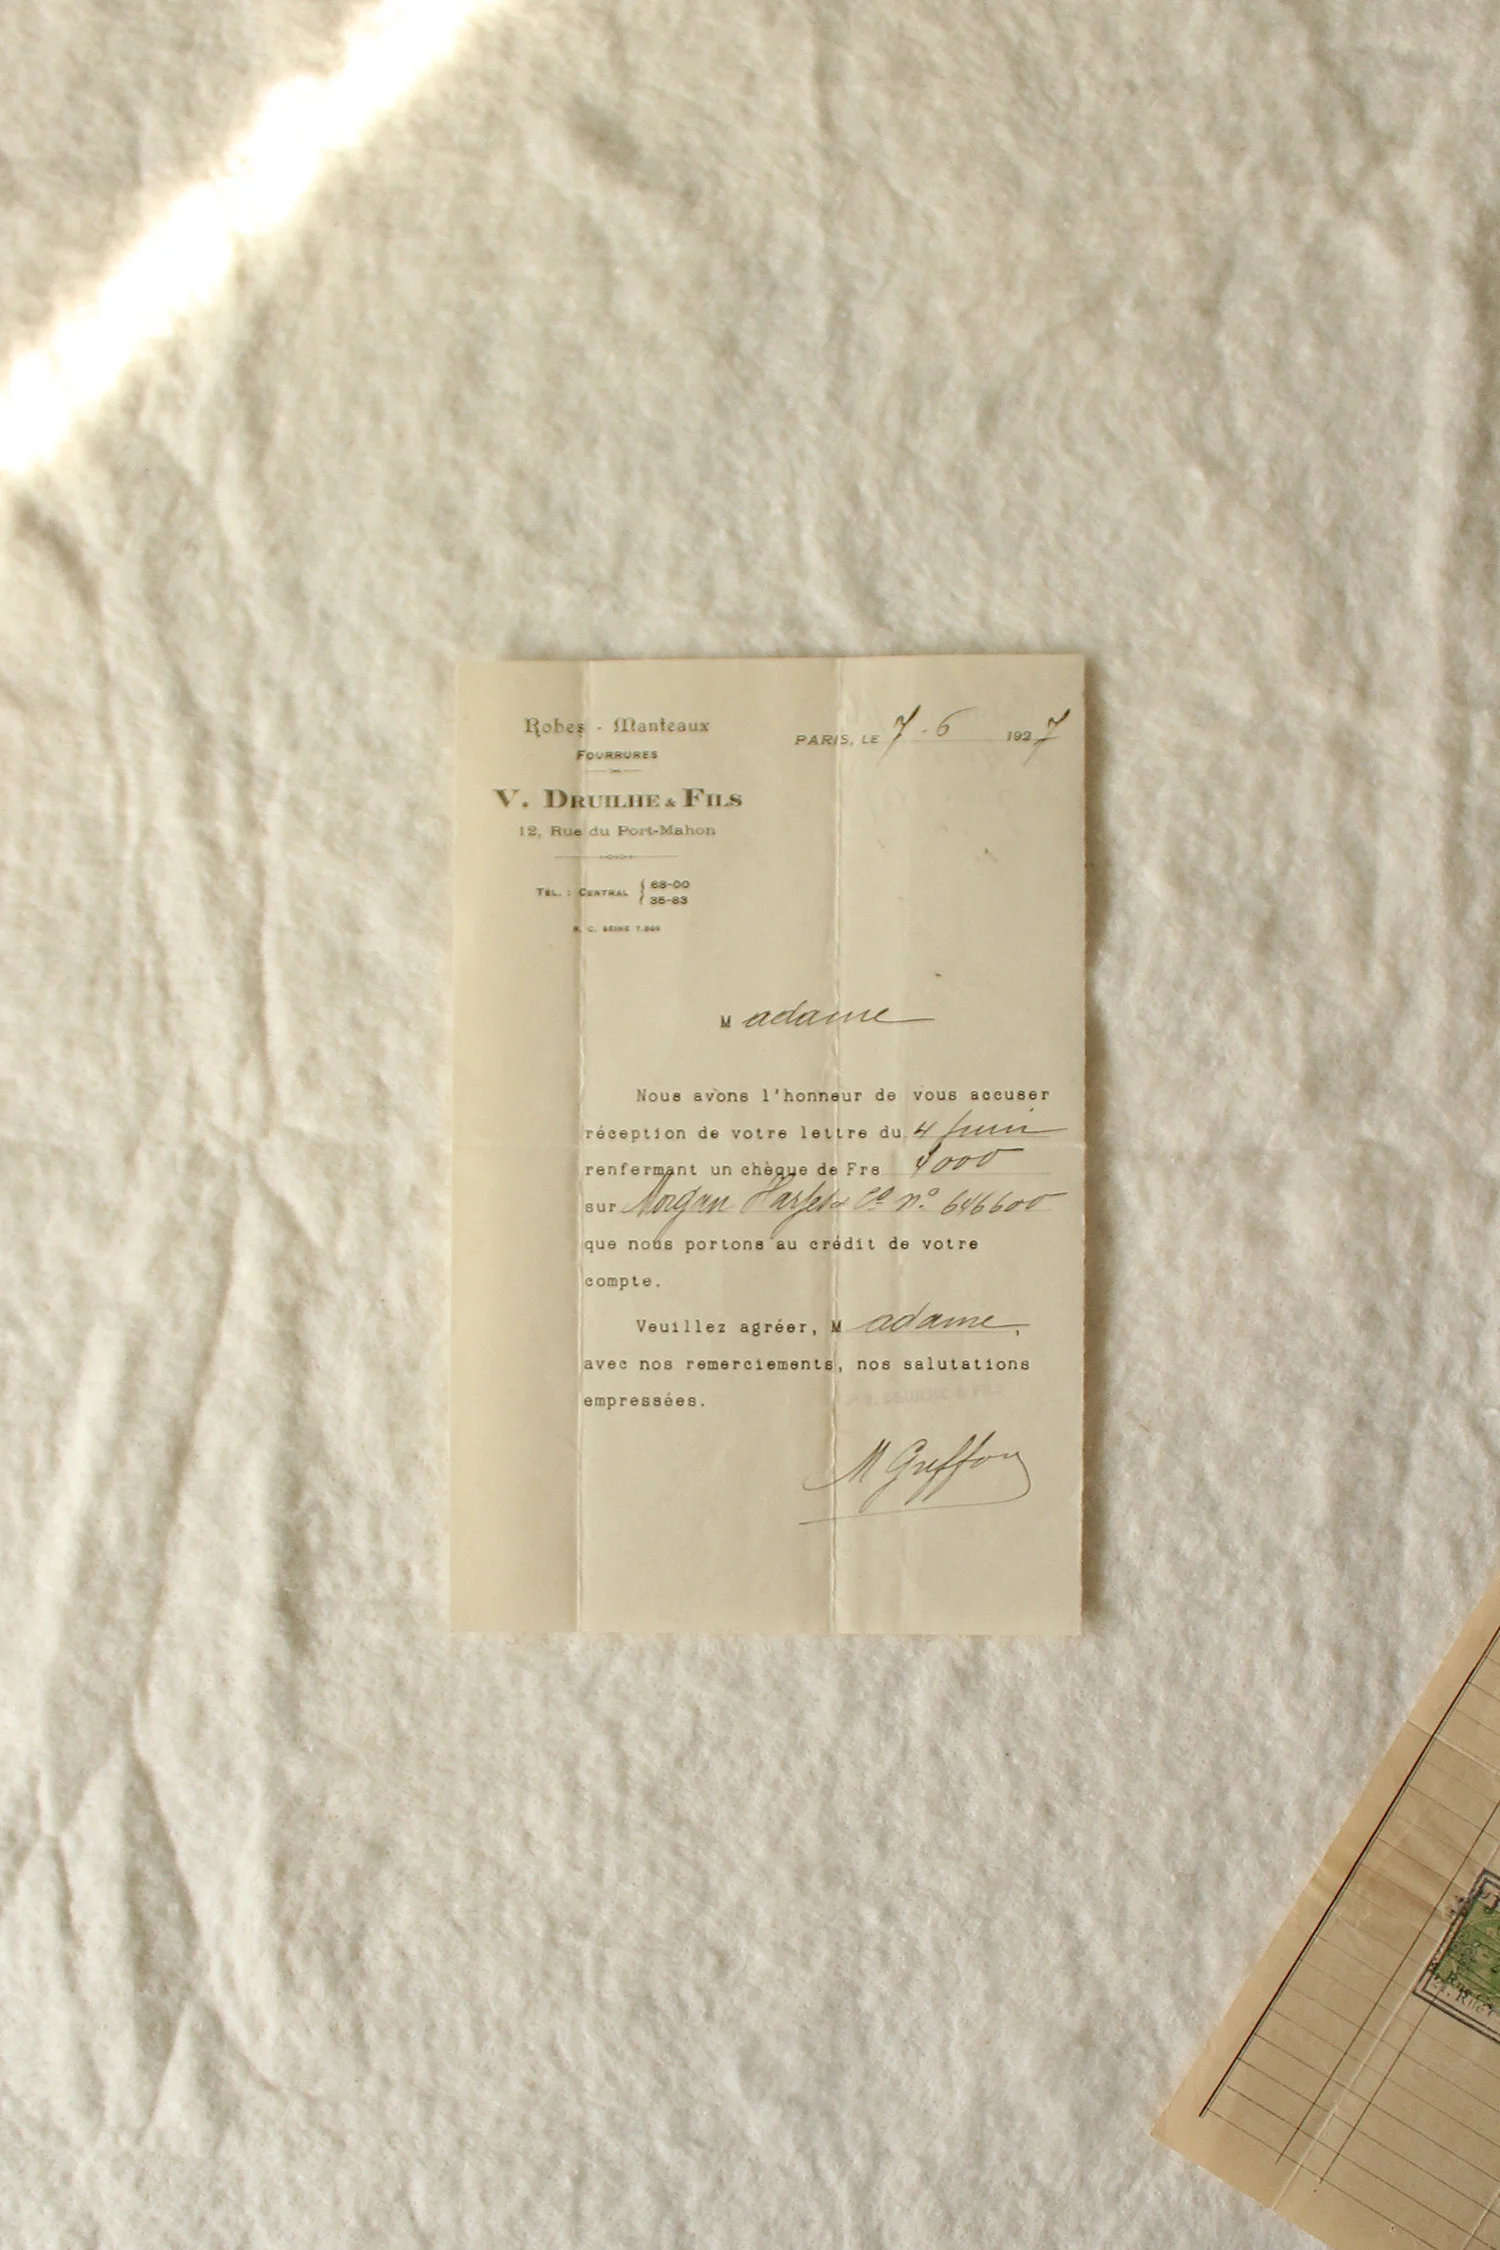 Robes - Manteaux
FOURRURES
V. DRUILHE & FILS
12, Rue du Port-Mahon
TÉL. : CENTRAL { 68-00
35-83
R. C. SEINE
PARIS, LE 7-6 1927
Madame
Nous avons l'honneur de vous accuser
réception de votre lettre du 4 Juin
renfermant un chèque de Frs 4000
sur Morgan Harjes & Cº nº 646600
que nous portons au crédit de votre
compte.
Veuillez agréer, Madame,
avec nos remerciements, nos salutations
empressées.
V. DRUILHE & FILS
M Griffon